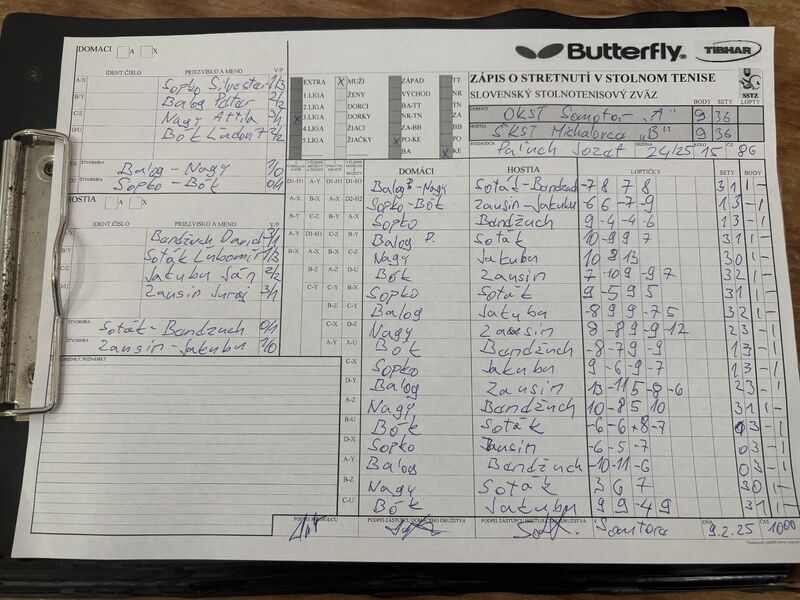 DOMÁCI A X
Butterfly. TIBHAR
IDENT.ČÍSLO PRIEZVISKO A MENO V/P
A/X Sopko Silvester 1/3
B/Y Balog Peter 2/2
C/Z Nagy Attila 3/1
D/U Bók Ľudovít 2/2
ŠTVORHRA
Balog - Nagy 1/0
Sopko - Bók 0/1
EXTRA X MUŽI ZÁPAD TT
1.LIGA ŽENY VÝCHOD NR
2.LIGA DORCI BA-TT ZA
X 3.LIGA DORKY NR-TN BB
4.LIGA ŽIACI ZA-BB PO
5.LIGA ŽIAČKY PO-KE
BA X KE
ZÁPIS O STRETNUTÍ V STOLNOM TENISE
SLOVENSKÝ STOLNOTENISOVÝ ZVÄZ SSTZ
BODY SETY LOPTY
DOMÁCI OKST Somotor "A" 9 36
HOSTIA ŠKST Michalovce "B" 9 36
ROZHODCA Paľuch Jozef SEZÓNA 24/25 KOLO 15 Č. 86
HOSTIA A X
IDENT.ČÍSLO PRIEZVISKO A MENO V/P
A/X Bandžuch David 3/1
B/Y Soták Ľubomír 1/3
C/Z Jakubu Ján 2/2
D/U Zausin Juraj 3/1
ŠTVORHRA
Soták - Bandžuch 0/1
Zausin - Jakubu 1/0
POZNÁMKY
DOMÁCI HOSTIA LOPTIČKY SETY BODY
Balog P - Nagy Soták - Bandžuch -7 8 7 8 3 1 1 -
Sopko - Bók Zausin - Jakubu -6 6 -7 -9 1 3 - 1
Sopko Bandžuch 9 -4 -4 -6 1 3 - 1
Balog P. Soták 10 -9 9 7 3 1 1 -
Nagy Jakubu 10 8 13 3 0 1 -
Bók Zausin 7 -10 9 -9 7 3 2 1 -
Sopko Soták 9 -5 9 5 3 1 1 -
Balog Jakubu -8 9 9 -7 5 3 2 1 -
Nagy Zausin 8 -8 9 -9 -12 2 3 - 1
Bók Bandžuch -8 -7 9 -9 1 3 - 1
Sopko Jakubu 9 -6 -9 -7 1 3 - 1
Balog Zausin 13 -11 5 -8 -6 2 3 - 1
Nagy Bandžuch 10 -8 5 10 3 1 1 -
Bók Soták -6 -6 -7 0 3 - 1
Sopko Zausin -6 -5 -7 0 3 - 1
Balog Bandžuch -10 -11 -6 0 3 - 1
Nagy Soták 3 6 7 3 0 1 -
Bók Jakubu 9 9 -4 9 3 1 1 -
PODPIS ROZHODCU PODPIS ZÁSTUPCU DOMÁCEHO DRUŽSTVA PODPIS ZÁSTUPCU HOSŤUJÚCEHO DRUŽSTVA V Somotore DŇA 9.2.25 ČAS 10 00